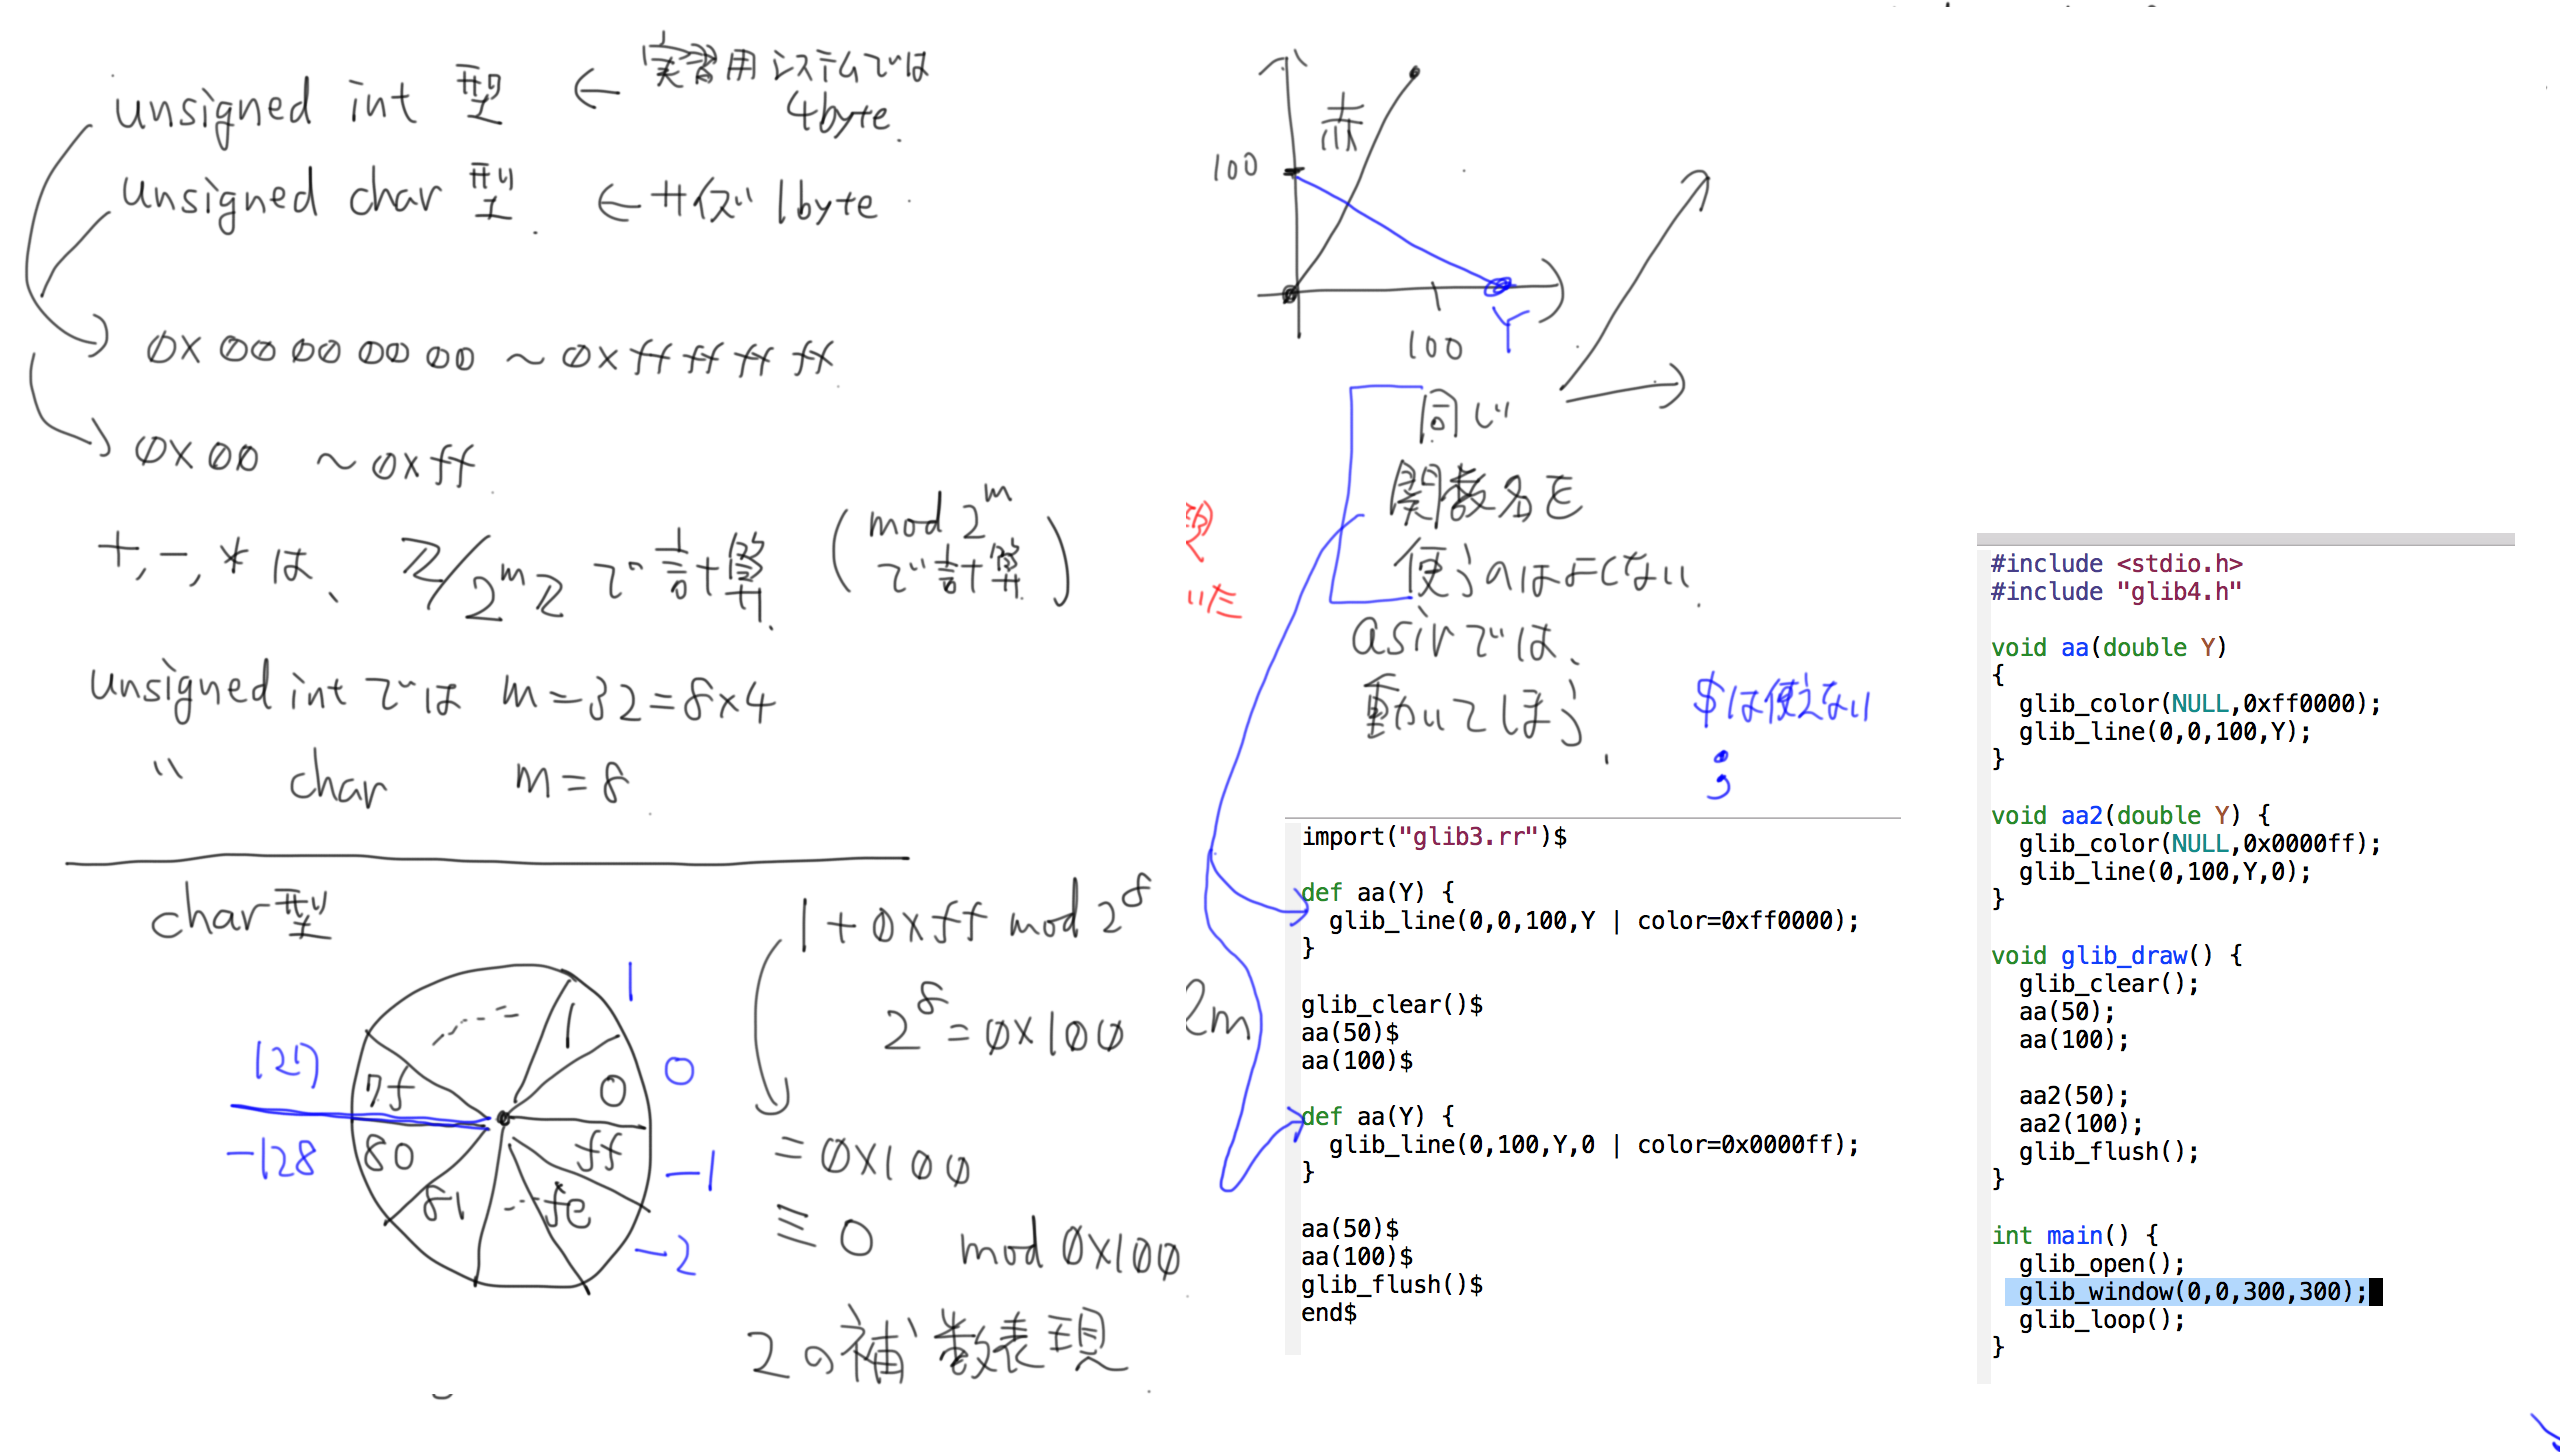 unsigned int 型 ← 実習用システムでは
4byte.
unsigned char 型. ← 大体 1byte
0x 00 00 00 00 ~ 0x ff ff ff ff
0x 00 ~ 0x ff
+, -, * は、 Z/2^m Z で 計算. (mod 2^m で 計算)
unsigned int では m = 32 = 8x4
〃 char m = 8
char 型
1
0
ff
fe
81
80
7f
1
0
-1
-2
127
-128
1 + 0xff mod 2^8
2^8 = 0x100
= 0x100
≡ 0 mod 0x100
2の補数表現
100
赤
100
Y
同じ
関数名を
使うのはよくない.
asirでは、
動いてしまう.
$は使えない
;
いた
2m
import("glib3.rr")$
def aa(Y) {
glib_line(0,0,100,Y | color=0xff0000);
}
glib_clear()$
aa(50)$
aa(100)$
def aa(Y) {
glib_line(0,100,Y,0 | color=0x0000ff);
}
aa(50)$
aa(100)$
glib_flush()$
end$
#include <stdio.h>
#include "glib4.h"
void aa(double Y)
{
glib_color(NULL,0xff0000);
glib_line(0,0,100,Y);
}
void aa2(double Y) {
glib_color(NULL,0x0000ff);
glib_line(0,100,Y,0);
}
void glib_draw() {
glib_clear();
aa(50);
aa(100);
aa2(50);
aa2(100);
glib_flush();
}
int main() {
glib_open();
glib_window(0,0,300,300);
glib_loop();
}